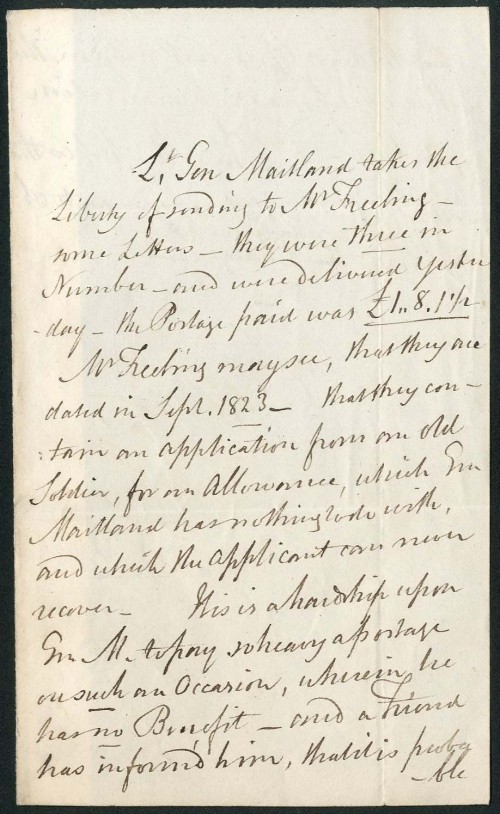 Lt. Gen Maitland takes the
Liberty of sending to Mr Freeling -
some Letters - they were three in
Number - and were delivered yester
-day - the Postage paid was £1..8.1½
Mr Freeling may see, that they are
dated in Sept. 1823 - that they con-
:tain an application from an old
Soldier, for an Allowance, which Gen
Maitland has nothing to do with,
and which the applicant can never
recover - This is a hardship upon
Gen M. to pay so heavy a postage
on such an Occasion, wherein he
has no Benefit - and a Friend
has inform'd him, that it is proba
-ble